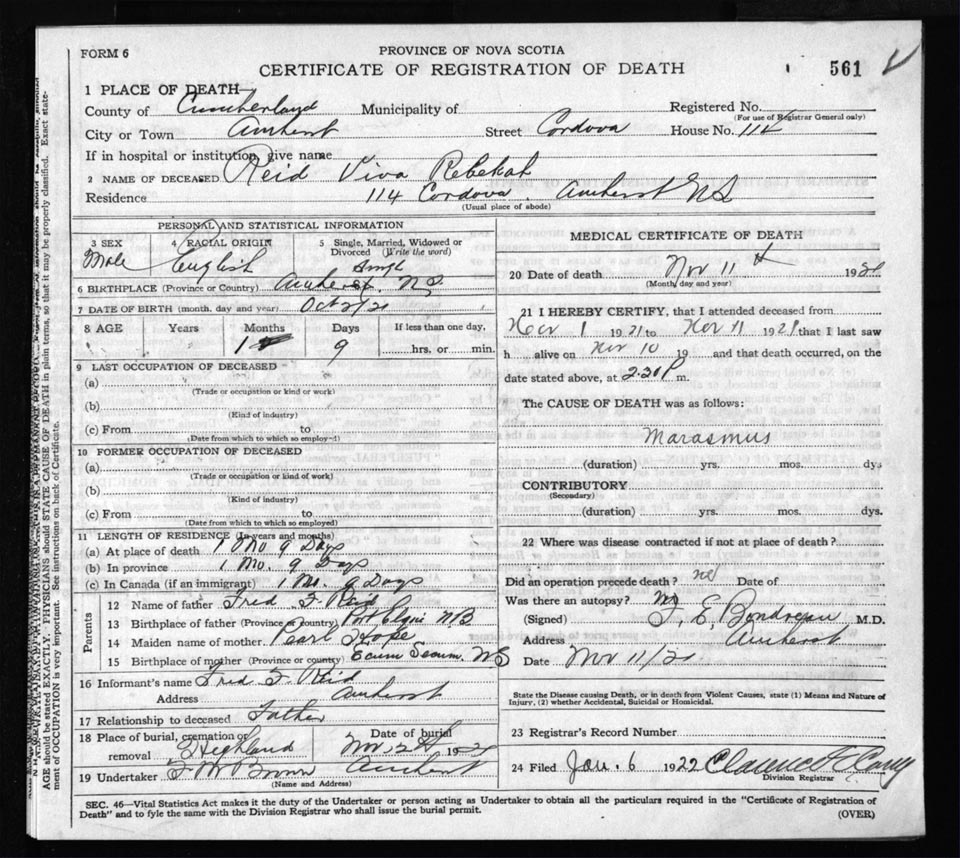 FORM 6
PROVINCE OF NOVA SCOTIA
CERTIFICATE OF REGISTRATION OF DEATH
561
1 PLACE OF DEATH
County of Cumberland Municipality of Registered No.
(For use of Registrar General only)
City or Town Amherst Street Cordova House No. 114
If in hospital or institution, give name
2 NAME OF DECEASED Reid Viva Rebekah
Residence 114 Cordova Amherst NS
(Usual place of abode)
PERSONAL AND STATISTICAL INFORMATION
3 SEX 4 RACIAL ORIGIN 5 Single, Married, Widowed or Divorced (Write the word)
Male English Single
6 BIRTHPLACE (Province or Country) Amherst, NS
7 DATE OF BIRTH (month, day and year) Oct 2/21
8 AGE Years Months Days If less than one day,
1 9 hrs. or min.
9 LAST OCCUPATION OF DECEASED
(a)
(Trade or occupation or kind or work)
(b)
(Kind of industry)
(c) From to
(Date from which to which so employ-d)
10 FORMER OCCUPATION OF DECEASED
(a)
(Trade or occupation or kind of work)
(b)
(Kind of industry)
(c) From to
(Date from which to which so employed)
11 LENGTH OF RESIDENCE (In years and months)
(a) At place of death 1 Mo 9 Days
(b) In province 1 Mo. 9 Days
(c) In Canada (if an immigrant) 1 Mo. 9 Days
Parents
12 Name of father Fred F. Reid
13 Birthplace of father (Province or country) Port Elgin NB
14 Maiden name of mother Pearl Hope
15 Birthplace of mother (Province or country) Ecum Secum. NS
16 Informant's name Fred F. Reid
Address Amherst
17 Relationship to deceased Father
18 Place of burial, cremation or removal Highland Date of burial Nov. 192
19 Undertaker F W Brown Amherst
(Name and Address)
MEDICAL CERTIFICATE OF DEATH
20 Date of death Nov 11 1921
(Month, day and year)
21 I HEREBY CERTIFY, that I attended deceased from
Nov 1 1921 to Nov 11 1921 that I last saw
h alive on Nov 10 19 and that death occurred, on the
date stated above, at 2.20 P m.
The CAUSE OF DEATH was as follows:
Marasmus
(duration) yrs. mos. dys
CONTRIBUTORY
(Secondary)
(duration) yrs. mos. dys.
22 Where was disease contracted if not at place of death?
Did an operation precede death? no Date of
Was there an autopsy? no
(Signed) F. E. Boudreau M.D.
Address Amherst
Date Nov 11/21
State the Disease causing Death, or in death from Violent Causes, state (1) Means and Nature of
Injury, (2) whether Accidental, Suicidal or Homicidal.
23 Registrar's Record Number
24 Filed Jan. 6 1922 Clarence
Division Registrar
SEC. 46—Vital Statistics Act makes it the duty of the Undertaker or person acting as Undertaker to obtain all the particulars required in the "Certificate of Registration of
Death" and to fyle the same with the Division Registrar who shall issue the burial permit.
(OVER)
AGE should be stated EXACTLY. PHYSICIANS should STATE CAUSE OF DEATH in plain terms, so that it may be properly classified. Exact state-
ment of OCCUPATION is very important. See instructions on back of Certificate.